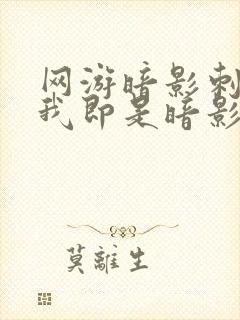 网游暗影刺
我即是暗影
莫離生